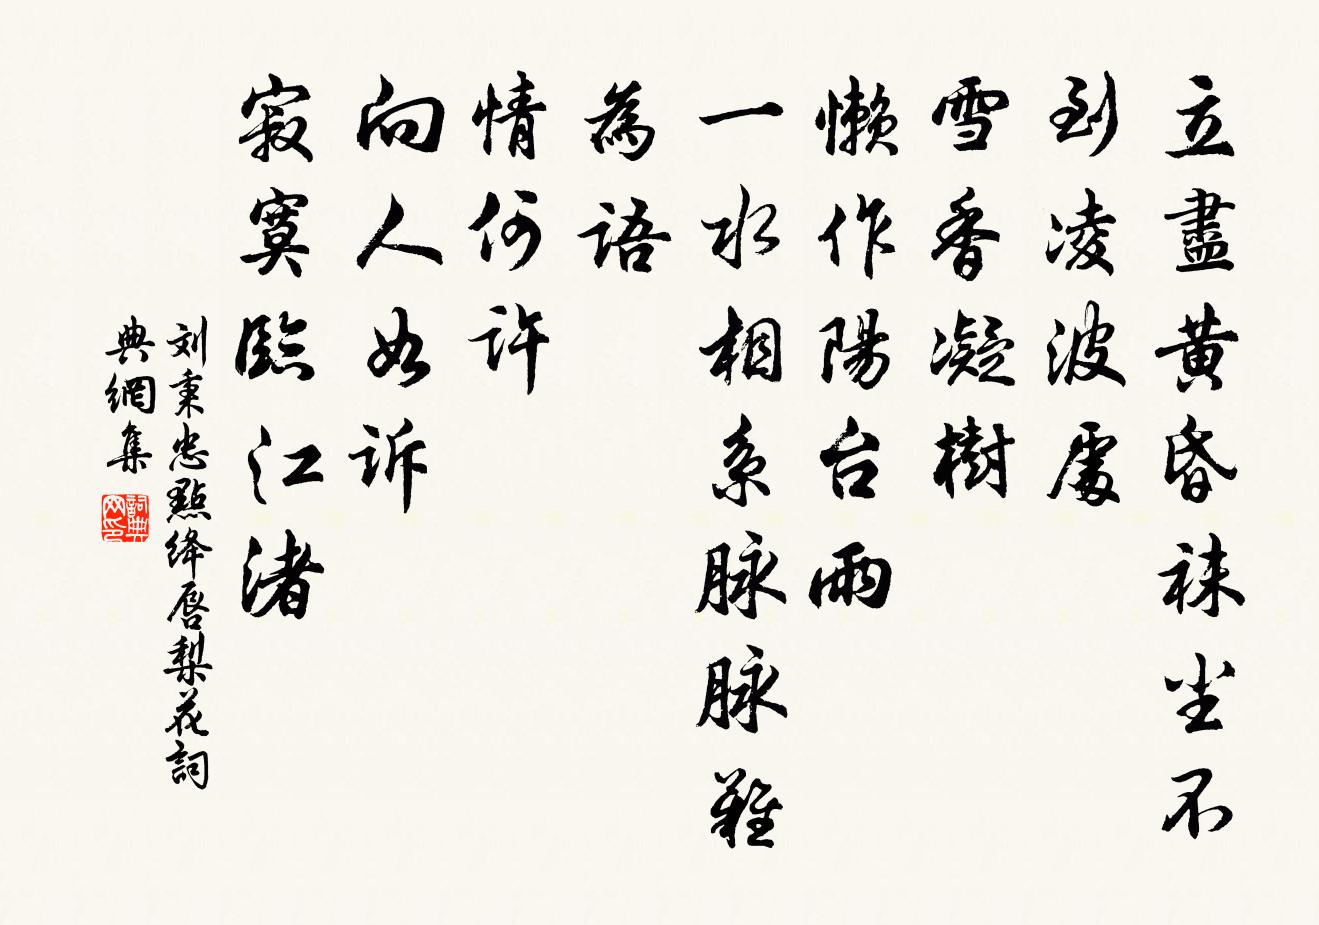 立盡黃昏袜尘不
到凌波處
雪香凝樹
懶作陽台雨
一水相系脉脉難
為語
情何許
向人如訴
寂寞臨江渚
刘秉忠點絳唇梨花詞
典網集
詞典網印